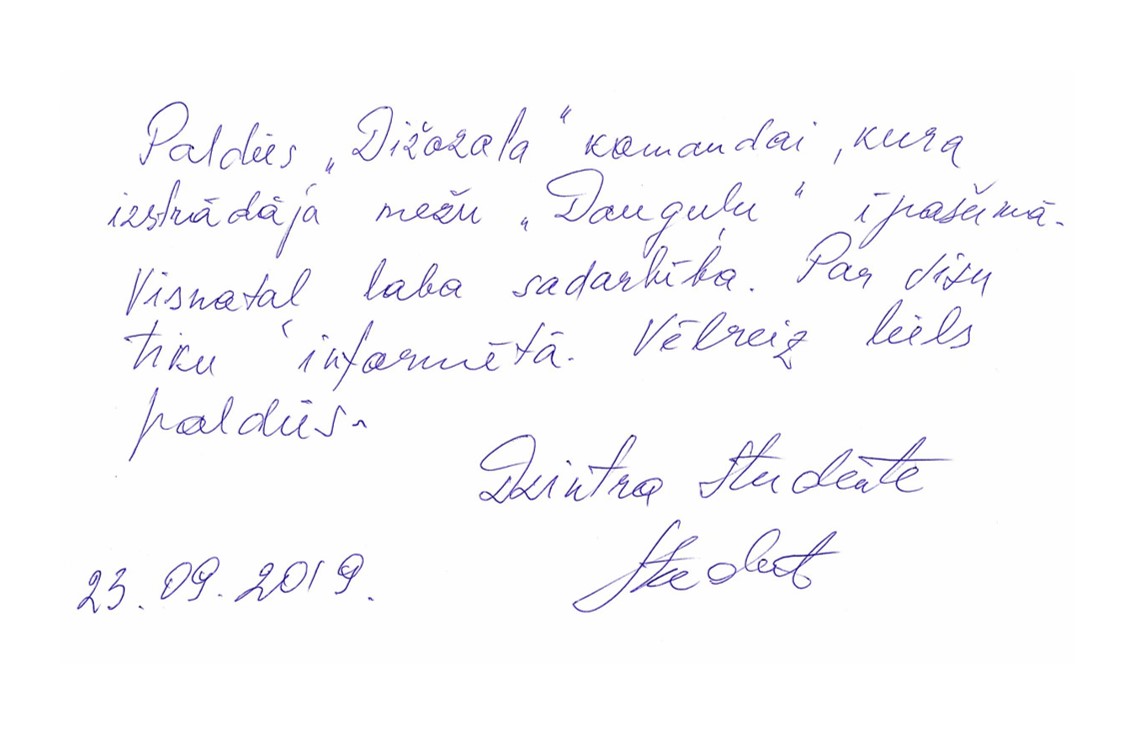 Paldies „Dižozola“ komandai, kura
izstrādāja mežu „Dauguļu“ īpašumā.
Visnotaļ laba sadarbība. Par visu
tiku informētā. Vēlreiz liels
paldies.
Dzintra Studente
23.09.2019.